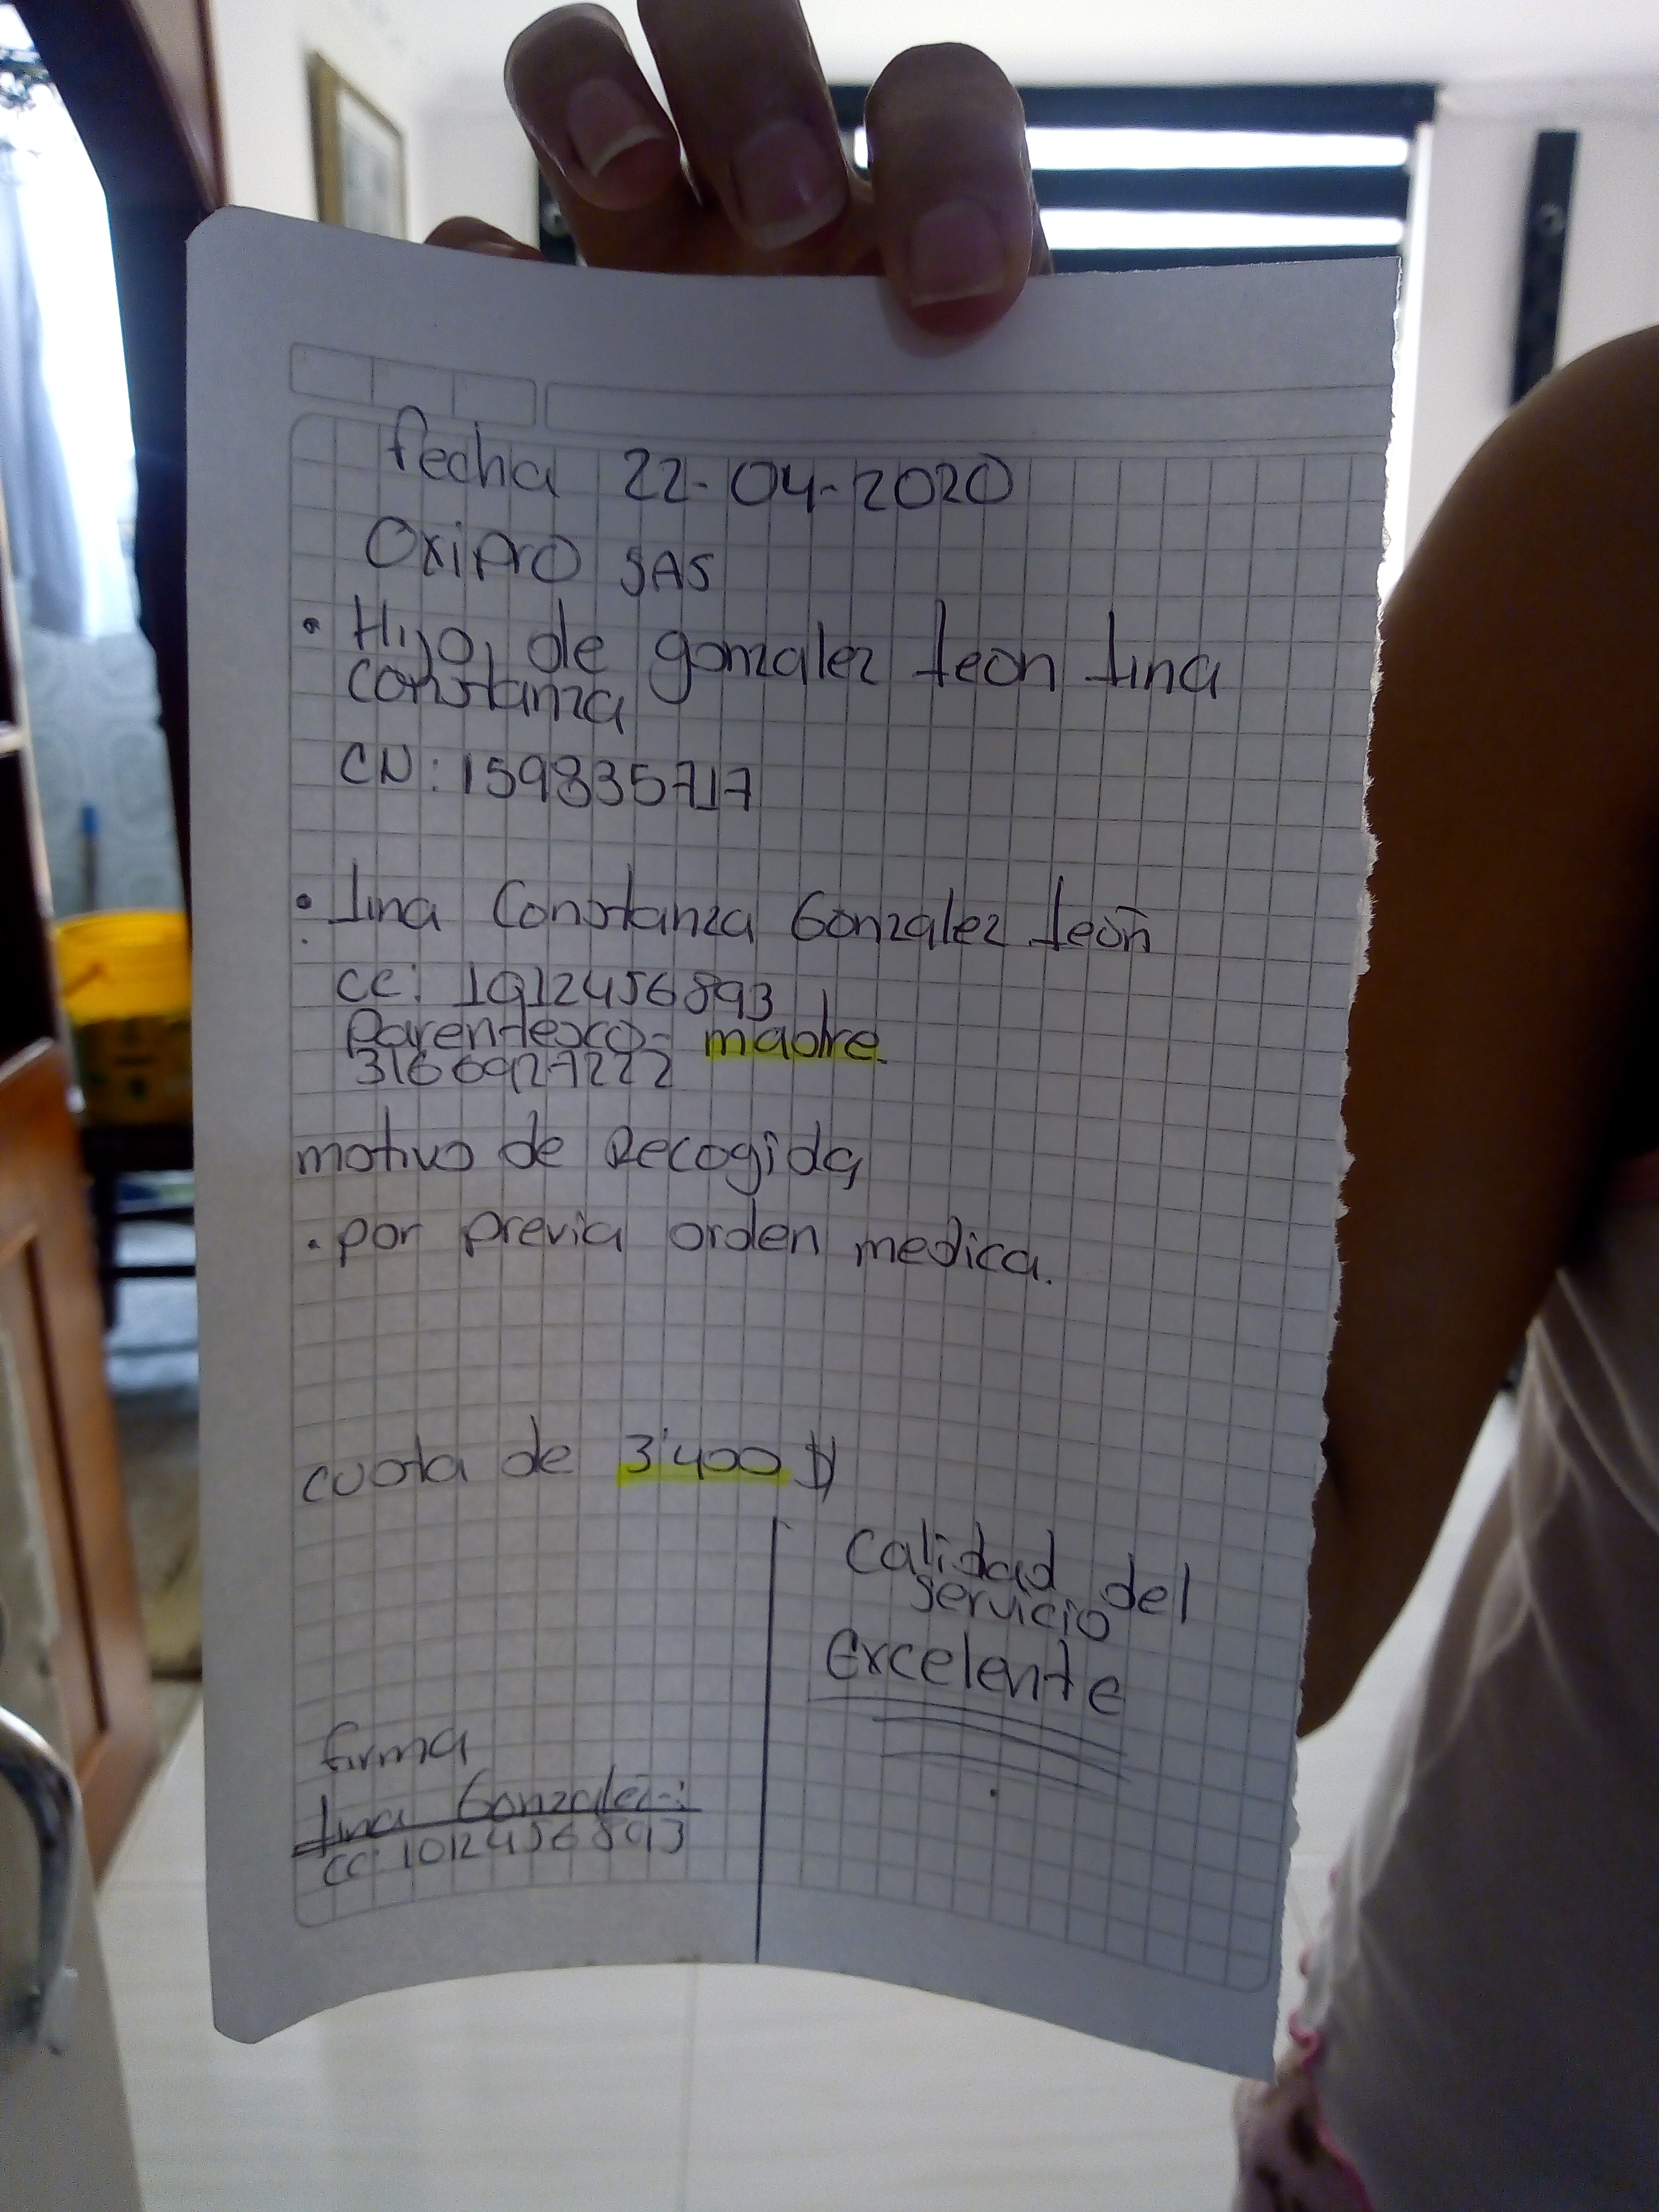 fecha 22-04-2020
OxiPRO SAS
• Hijo, de gonzalez Leon Lina
constanza
CN: 159835717
• Lina Constanza Gonzalez León
CC: 1012456893
Parentesco- madre.
3166927222
motivo de Recogida
• por previa orden medica.
cuota de 3'400 $
Calidad del
servicio
Excelente
firma
Lina Gonzalez
CC: 1012456893